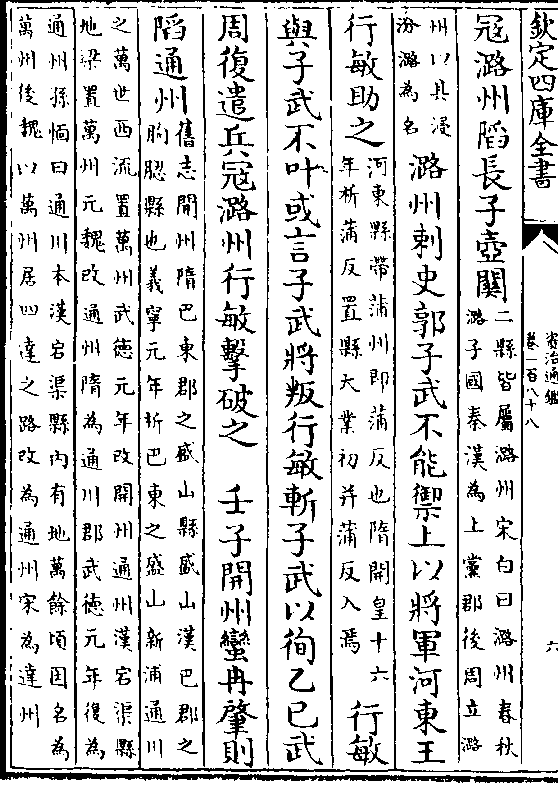 欽定四庫全書
資治通鑑
卷一百八十八
六
冦潞州陷長子壺關二縣皆屬潞州宋白曰潞州春秋
潞子國秦漢為上黨郡後周立潞
州以其浸
汾潞為名
潞州刺史郭子武不能禦上以將軍河東王
行敏助之河東縣帶蒲州即蒲反也隋開皇十六
年析蒲反置縣大業初并蒲反入焉
行敏
與子武不叶或言子武將叛行敏斬子武以徇乙巳武
周復遣兵冦潞州行敏擊破之　壬子開州蠻冉肇則
陷通州舊志開州隋巴東郡之盛山縣盛山漢巴郡之
朐䏰縣也義寧元年析巴東之盛山新浦通川
之萬世西流置萬州武徳元年改開州通州漢宕渠縣
地梁置萬州元魏改通州隋為通川郡武徳元年復為
通州孫愐曰通川本漢宕渠縣內有地萬餘頃因名為
萬州後魏以萬州居四達之路改為通州宋為達州